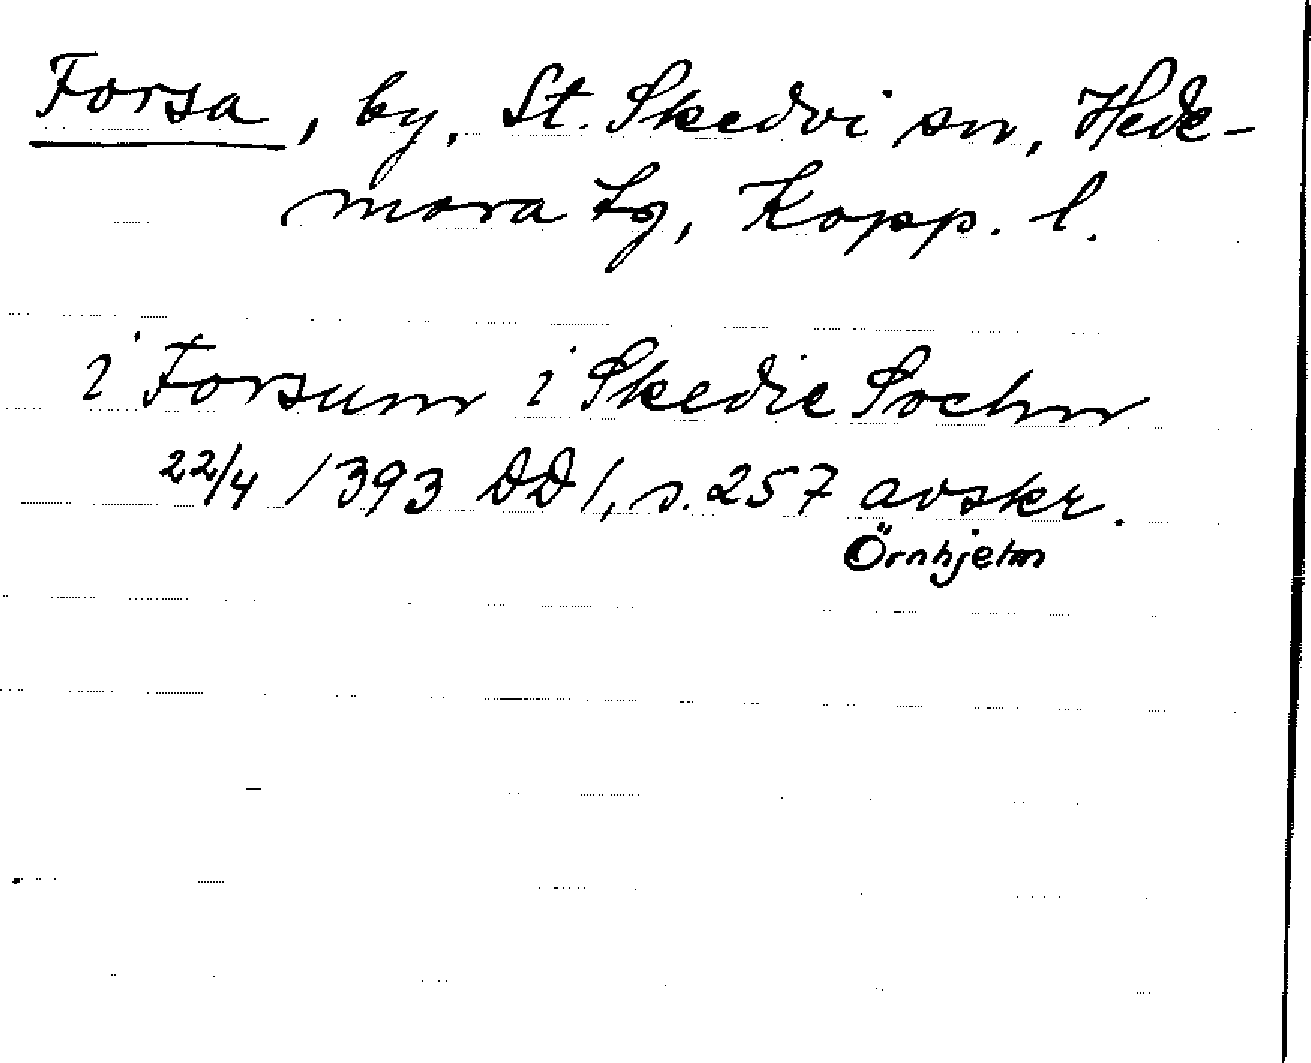 Forsa, by, St. Skedvi sn, Hede-
mora tg, Kopp. l.
i Forsum i Skedie Sochn
22/4 1393 DD 1, s. 257 avskr.
Örnhjelm